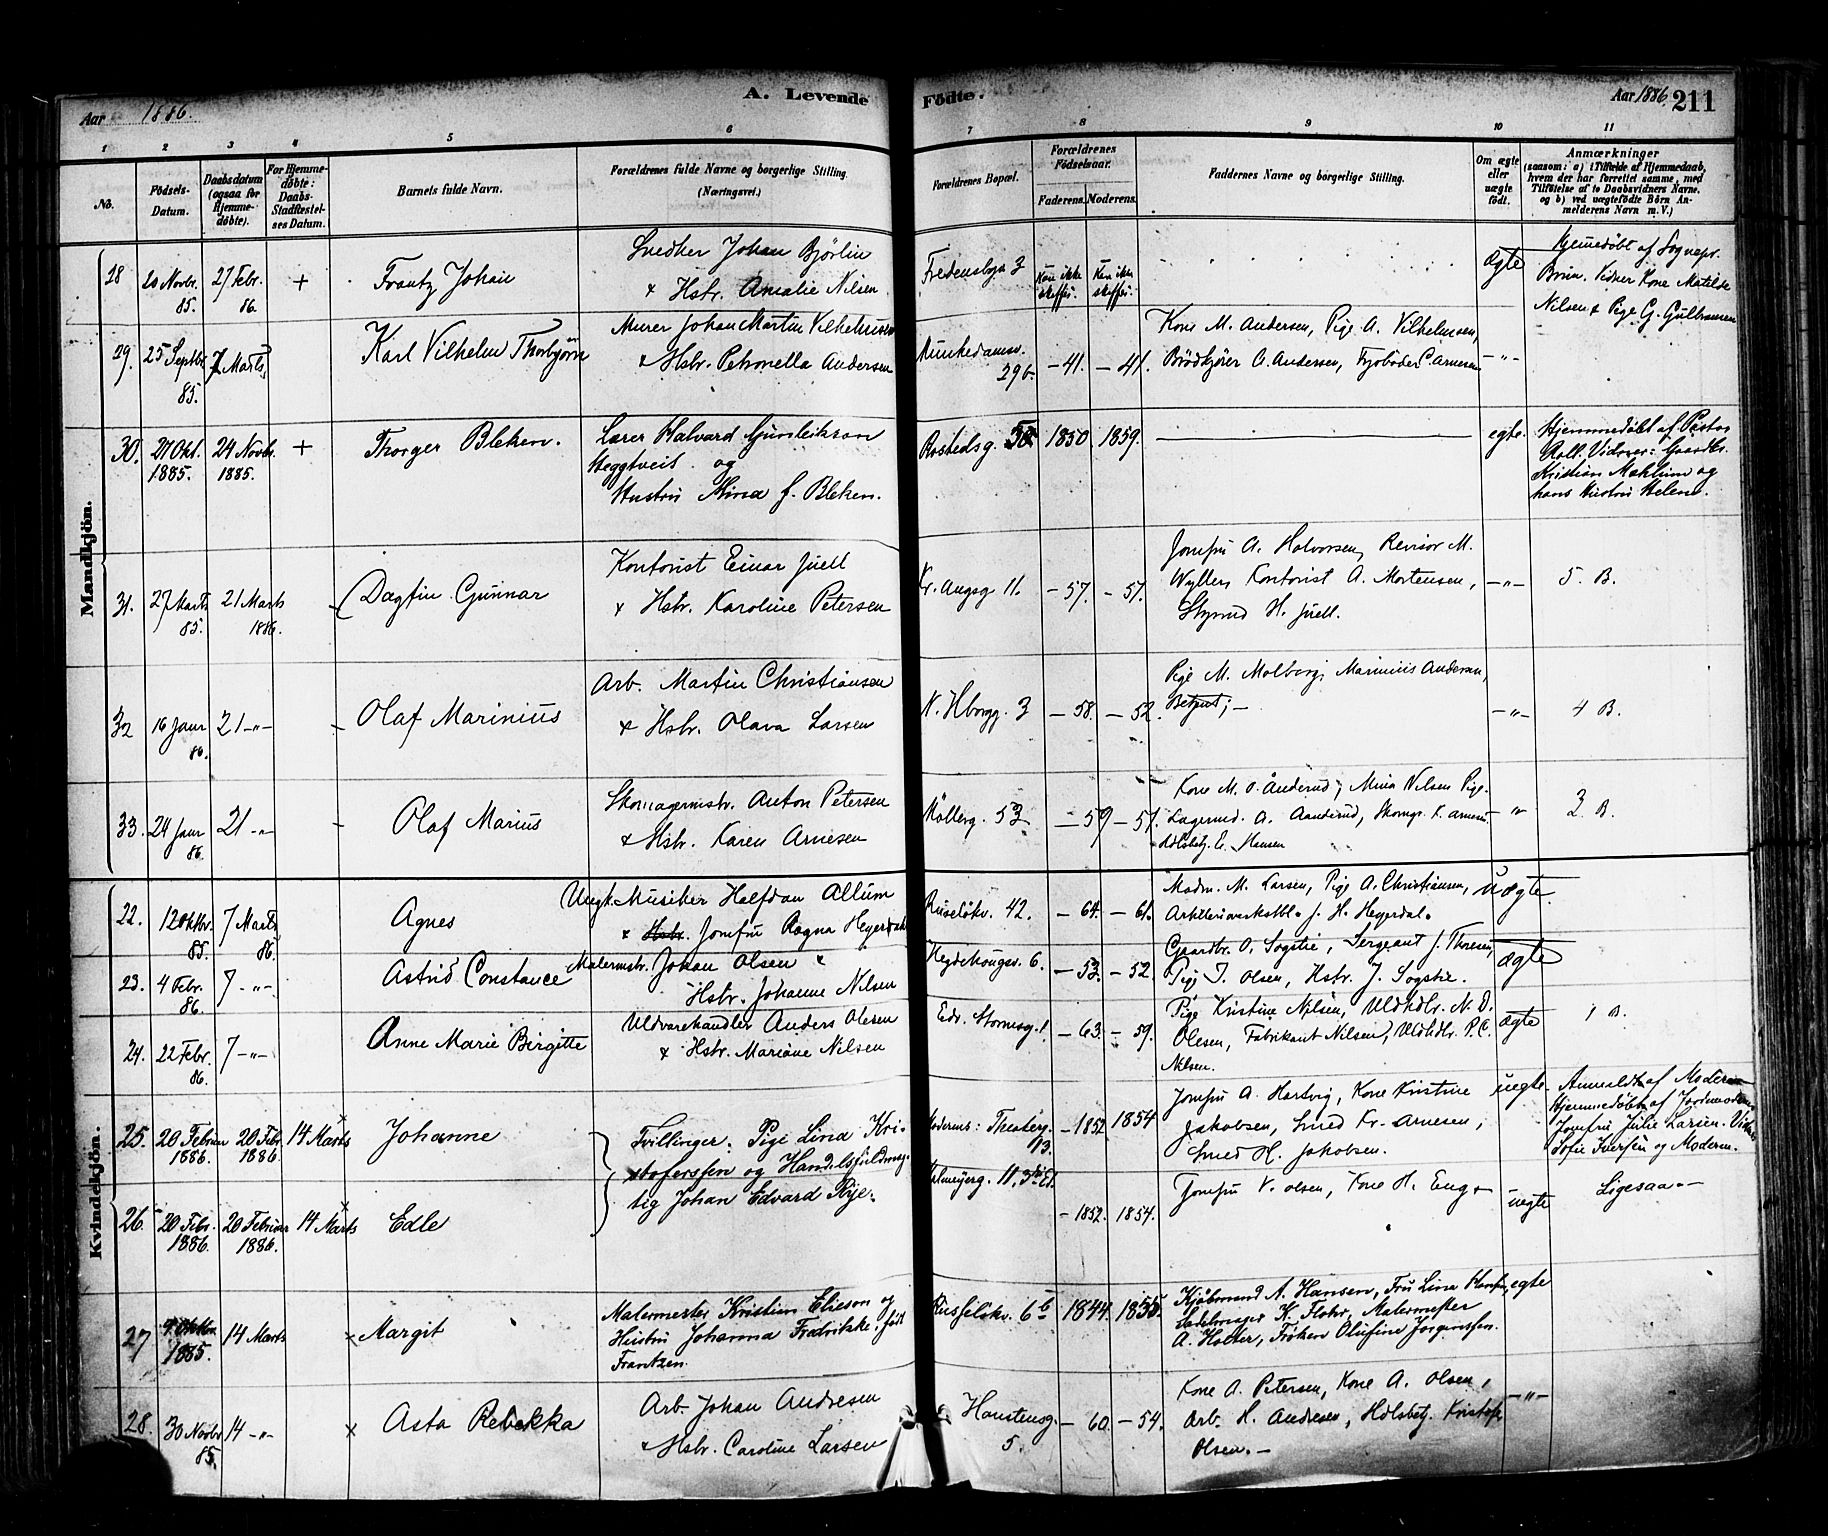 Aar 1886.
A. Levende
Födte.
Aar 1886 211
1 2 3 4 5 6 7 8 9 10 11
No.
Födsels-Datum.
Daabsdatum (ogsaa for Hjemme-döbte).
For Hjemme-döbte: Daabs-Stadfæstel-ses Datum.
Barnets fulde Navn.
Forældrenes fulde Navne og borgerlige Stilling.
(Næringsvei.)
Forældrenes Bopæl.
Forældrenes Födselsaar.
Faderens. Moderens.
Faddernes Navne og borgerlige Stilling.
Om ægte eller uægte födt.
Anmærkninger
(saasom: a) i Tilfælde af Hjemmedaab,
hvem der har forrettet samme, med
Tilföielse af to Daabsvidners Navne.
og b) ved uægtefödte Börn An-
melderens Navn m. V.)
Mandkjön.
28 20 Novbr. 85. 27 Febr. 86. + Frantz Johan
Snedker Johan Bjørlin
& Hstr. Amalie Nilsen
Fredensbgv 3 Kan ikke skaffes. Kan ikke skaffes. ægte
Hjemmedøbt af Sognepr.
Brun. Vidner Kone Matilde
Nilsen & Pige G. Gulbransen
29. 25 Septbr. 85. 7 Marts Karl Vilhelm Thorbjørn
Murer Johan Martin Vilhelmsen
& Hstr. Petronella Andersen
Munkedamsv. 29 b. -41. -41.
Kone M. Andersen, Pige A. Vilhelmsen,
Brödkjører A. Andersen, Fyrbøder C. Arnesen -"-
30. 27 Okt. 1885. 24 Novbr. 1885. + Thorger Bleken.
Lærer Halvard Gunleikson
Heggtveit og
Hustru Mina f. Bleken.
Rostedsg. 1850 1859. egte.
Hjemmedøbt af Pastor
Roll. Vidner: Gaardbr.
Kristian Mæhlum og
hans Hustru Helene.
31. 27 Marts 85. 21 Marts 1886. Dagfin Gunnar
Kontorist Einar Juell
& Hstr. Karoline Petersen
Kr. Augsg 11. -57. -57.
Jomfru A. Halvorsen, Revisor M.
Wyller, Kontorist A. Mortensen,
Styrmd H. Juell. -"- 5. B.
32 16 Janr 86. 21 -"- Olaf Marinius
Arb. Martin Christiansen
& Hstr. Olava Larsen
N. Hborgg. 3 -58. -52.
Pige M. Molberg, Marinius Andersen,
Betjent; -"- 4 B.
33. 24 Janr 86. 21 -"- Olaf Marius
Skomagermstr. Anton Petersen
& Hstr. Karen Arnesen
Mölberg. 53 -59 -57.
Kone M. O. Ånderud, Mina Nilsen Pige.
Lagermd. A. Aanderud, Skomgr. K. Arnes.
Hdlsbetj. E. Hansen -"- 2. B.
Kvindekjön.
22. 12 Oktbr. 85. 7 Marts 86. Agnes
Ungk. Musiker Halfdan Allum
& Hstr. Jomfru Ragna Heyerdahl
Ruseløkv. 42. -64. -61.
Madm. M. Larsen, Pige A. Christiansen,
J. H. Heyerdal. uægte.
23. 4 Febr. 86. 7 -"- Astrid Constance
Malermstr. Johan Olsen &
Hstr. Johanne Nilsen
Hegdehougsv. 6. -53. -52.
Gaardbr. O. Sogstie, Sergeant J. Thoresen,
Pige T. Olsen, Hstr. J. Sogstie. ægte
24. 22 Febr. 86. 7 -"- Anne Marie Birgitte
Uldvarehandler Anders Olesen
& Hstr. Mariane Nilsen
Edv. Stormsg. 1. -63. -59.
Pige Kristine Nilsen, Uldhdlr. N. O.
Olesen, Fabrikant Nilsen, Uldhdlr. P. C.
Nilsen. ægte 1 B.
25. 20 Februar 1886. 20 Febr. 1886. 14 Marts Johanne
Tvillinger. Pige Lina Kri-
stoferssen og Handelsfuldmæg-
tig Johan Edvard Rye.
Moderns: Thesberg. 13. -1852. 1854
Jomfru A. Hartvig, Kone Kristine
Jakobsen, Smed Kr. Arnesen,
Smed H. Jakobsen. uegte.
Anmeldt af Moderen
Hjemmedøbt af Jordmoderen
Jomfru Julie Larsen. Vidner
Sofie Iversen og Moderen.
26. 20 Febr. 1886. 20 Februar 1886. 14 Marts Edle
Calmeyerg. 11, 3die Et. -1852. 1854.
Jomfru V. Olsen, Kone H. Eng uegte Ligesaa.-
27 1885. 14 Marts × Margit
Malermester Kristian Elieson og
Hustru Johanna Fredrikke, født
Frantzen.
Russeløkv. 6 b 1844. 1855
Kjøbmand A. Hansen, Fru Lina Hansen,
K. Flohr, Malermester
A. Holter, Frøken Olufine Jørgenssen. egte
28. 30 Novbr 85. 14 -"- × Asta Rebekka
Arb. Johan Andresen
& Hstr. Caroline Larsen
Hanstensg. 5. -60. -54.
Kone A. Petersen, Kone A. Olsen,
Arb. H. Andresen, Hdlsbetj. Kristofer
Olsen.- -"-